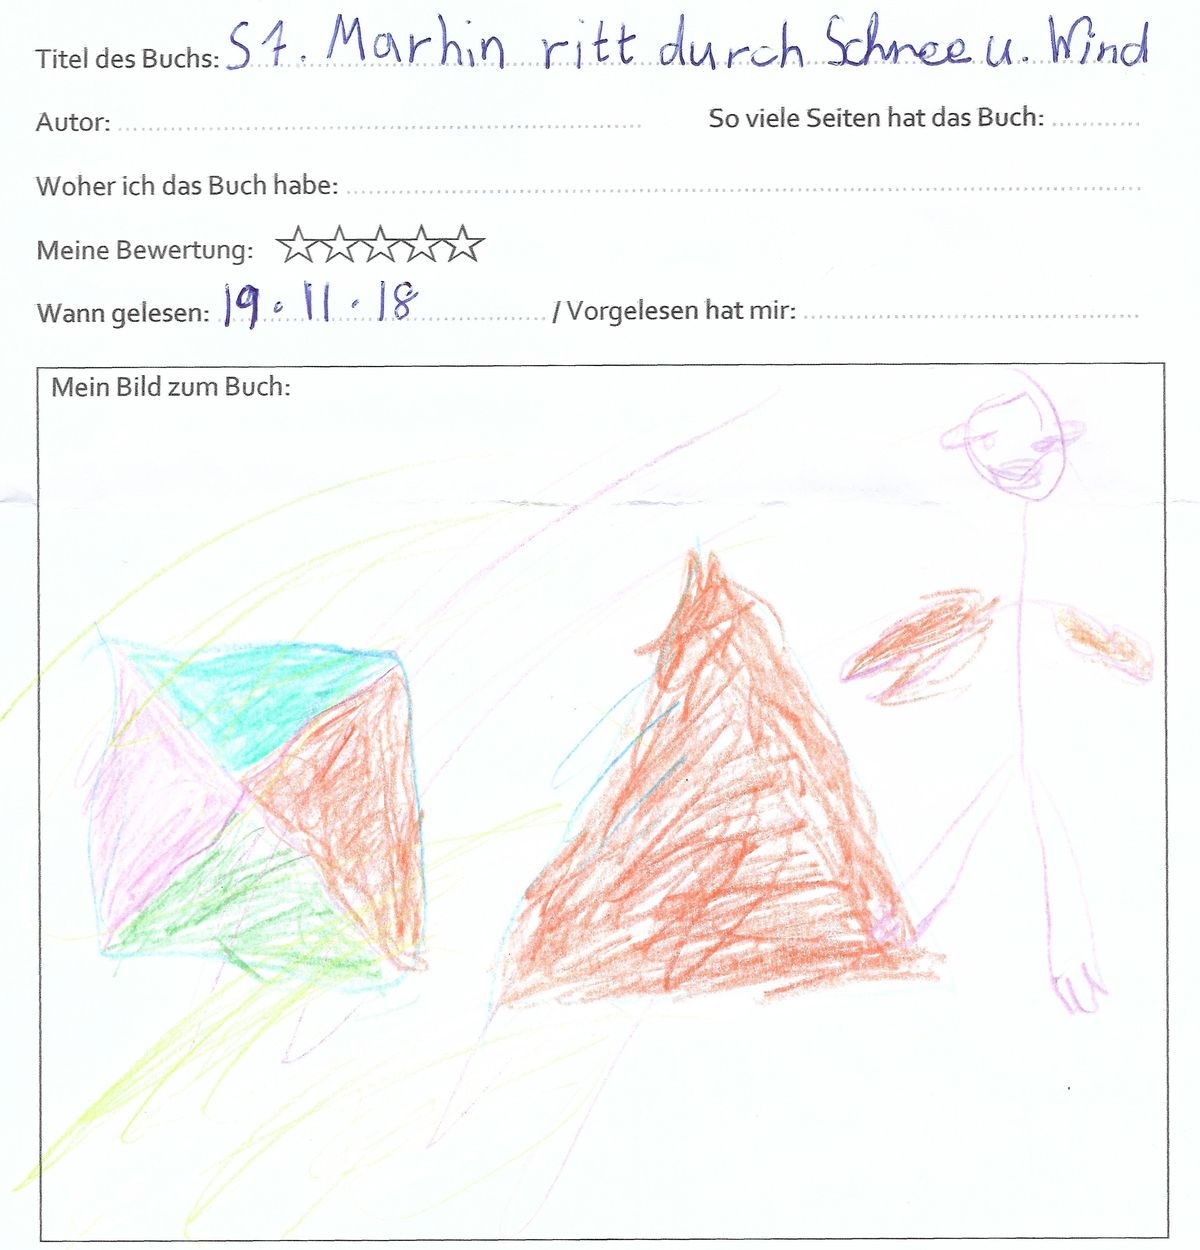 Titel des Buchs: St. Marhin ritt durch Schnee u. Wind
Autor: So viele Seiten hat das Buch:
Woher ich das Buch habe:
Meine Bewertung:
Wann gelesen: 19.11.18 / Vorgelesen hat mir:
Mein Bild zum Buch: